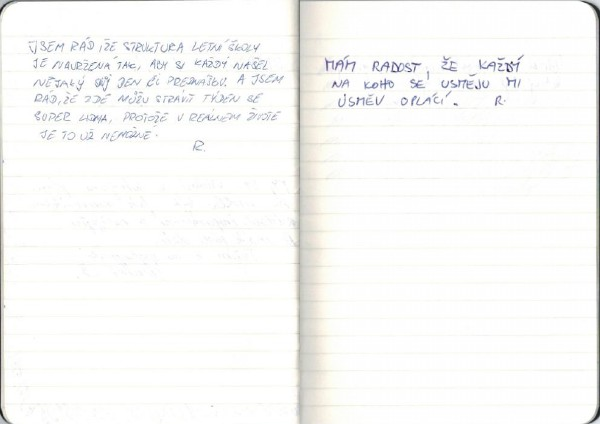 JSEM RÁD, ŽE STRUKTURA LETNÍ ŠKOLY
JE NAVRŽENÁ TAK, ABY SI KAŽDÝ NAŠEL
NĚJAKÝ SVŮJ DEN ČI PŘEDNÁŠKU. A JSEM
RÁD, ŽE ZDE MŮŽU STRÁVIT TÝDEN SE
SUPER LIDMA, PROTOŽE V REÁLNÉM ŽIVOTĚ
JE TO UŽ NEMOŽNÉ.
R.
MÁM RADOST, ŽE KAŽDÝ
NA KOHO SE USMĚJU MI
ÚSMĚV OPLÁCÍ. R.